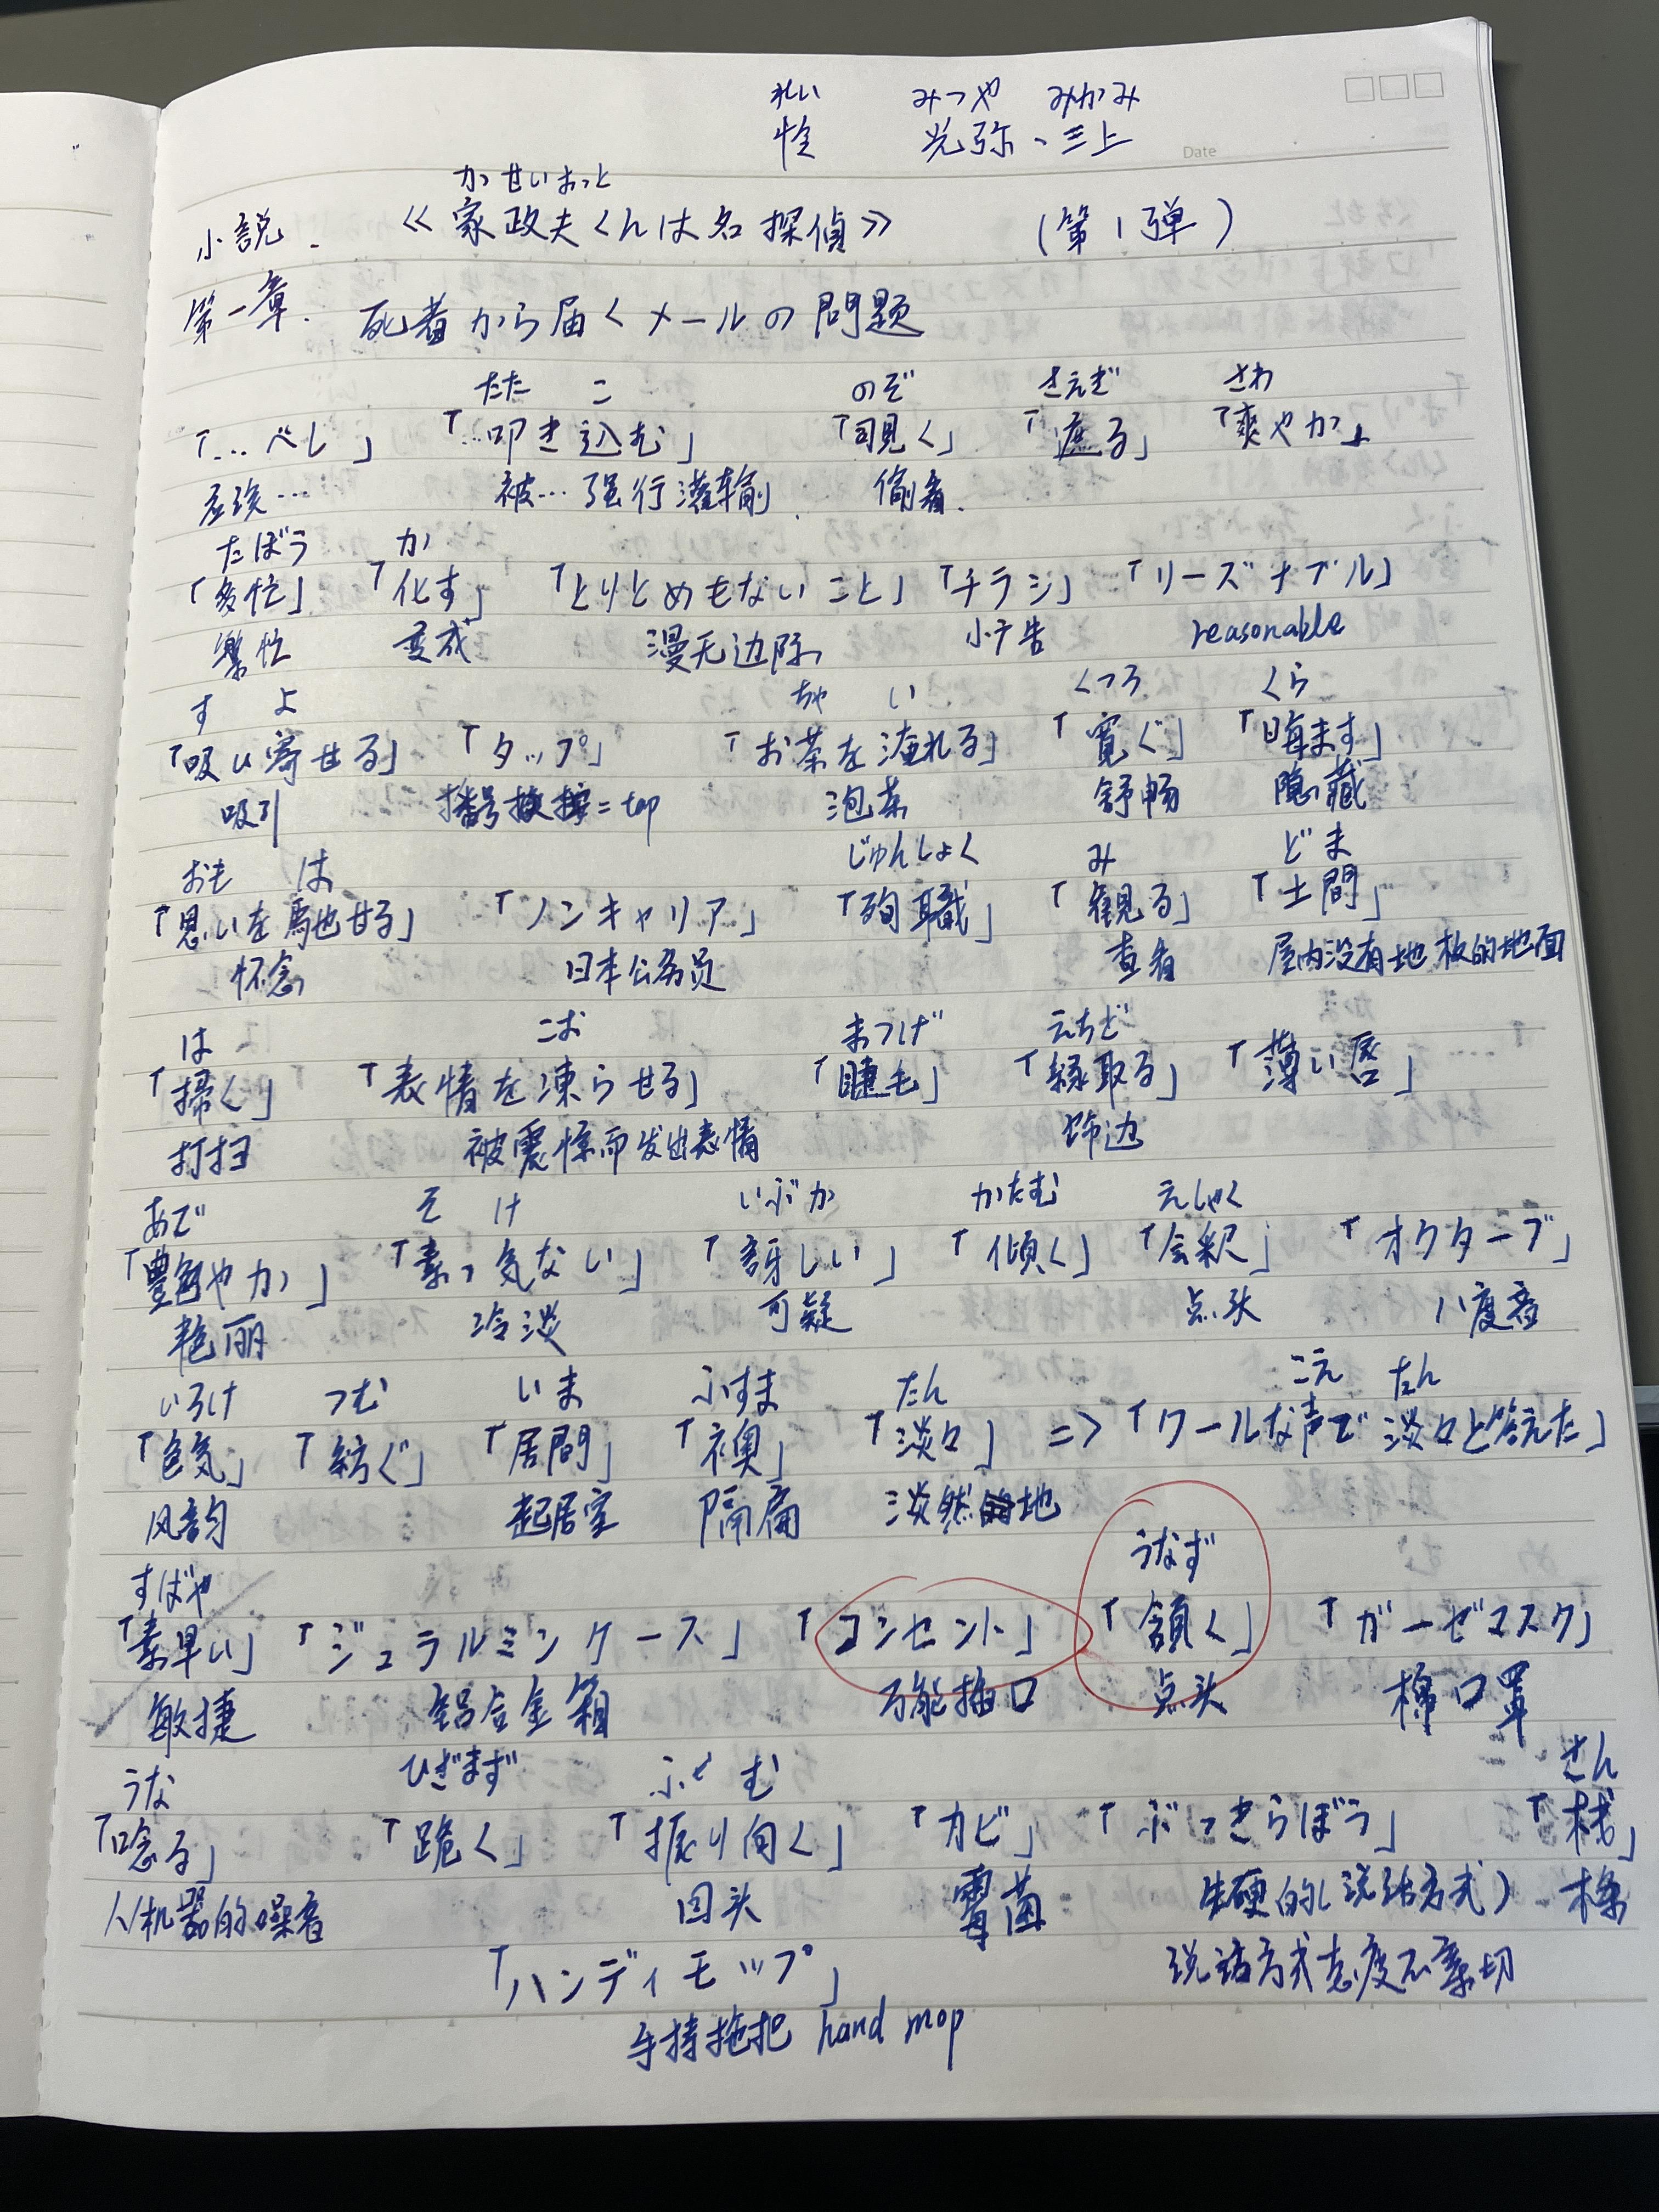 れい みつや みかみ
怜 光弥、三上
Date
かせいおっと
小説. 《家政夫くんは名探偵》 (第1弾)
第一章. 死者から届くメールの問題
たた こ のぞ さえぎ さわ
「…べし」 「…叩き込む」 「覗く」 「遮る」 「爽やか」
应该… 被…强行灌输. 偷看.
たぼう か
「多忙」 「化す」 「とりとめもないこと」 「チラシ」 「リーズナブル」
繁忙 变成 漫无边际 小广告 reasonable
す よ ちゃ い くつろ くら
「吸い寄せる」 「タップ」 「お茶を淹れる」 「寛ぐ」 「晦ます」
吸引 播号 按=tap 泡茶 舒畅 隐藏
おも は じゅんしょく み どま
「思いを馳せる」 「ノンキャリア」 「殉職」 「観る」 「土間」
怀念 日本公务员 查看 屋内没有地板的地面
は こお まつげ えちど
「掃く」 「表情を凍らせる」 「睫毛」 「縁取る」 「薄い唇」
打扫 被震惊而发出表情 饰边
あで そ け いぶか かたむ えしゃく
「艶やか」 「素っ気ない」 「訝しい」 「傾く」 「会釈」 「オクターブ」
艳丽 冷淡 可疑 点头 八度音
いろけ つむ いま ふすま たん こえ たん
「色気」 「紡ぐ」 「居間」 「襖」 「淡々」 => 「クールな声で淡々と答えた」
风韵 起居室 隔扇 淡然地
すばや うなず
「素早い」 「ジュラルミンケース」 「コンセント」 「頷く」 「ガーゼマスク」
敏捷 铝合金箱 万能插口 点头 棉口罩
うな ひざまず ふ む さん
「唸る」 「跪く」 「振り向く」 「カビ」 「ぶっきらぼう」 「桟」
人/机器的噪音 回头 霉菌 生硬的(说话方式) 木条
「ハンディモップ」 说话方式态度不亲切
手持拖把 hand mop